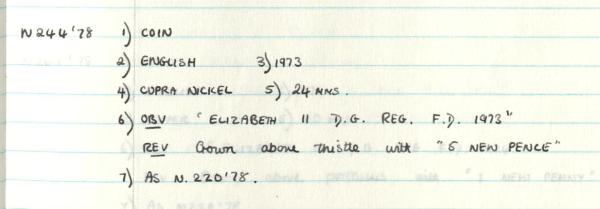 N244'78 1) COIN
2) ENGLISH 3) 1973
4) CUPRA NICKEL 5) 24 MMS.
6) OBV "ELIZABETH II D.G. REG. F.D. 1973"
REV Crown above thistle with "5 NEW PENCE"
7) AS N.220'78.